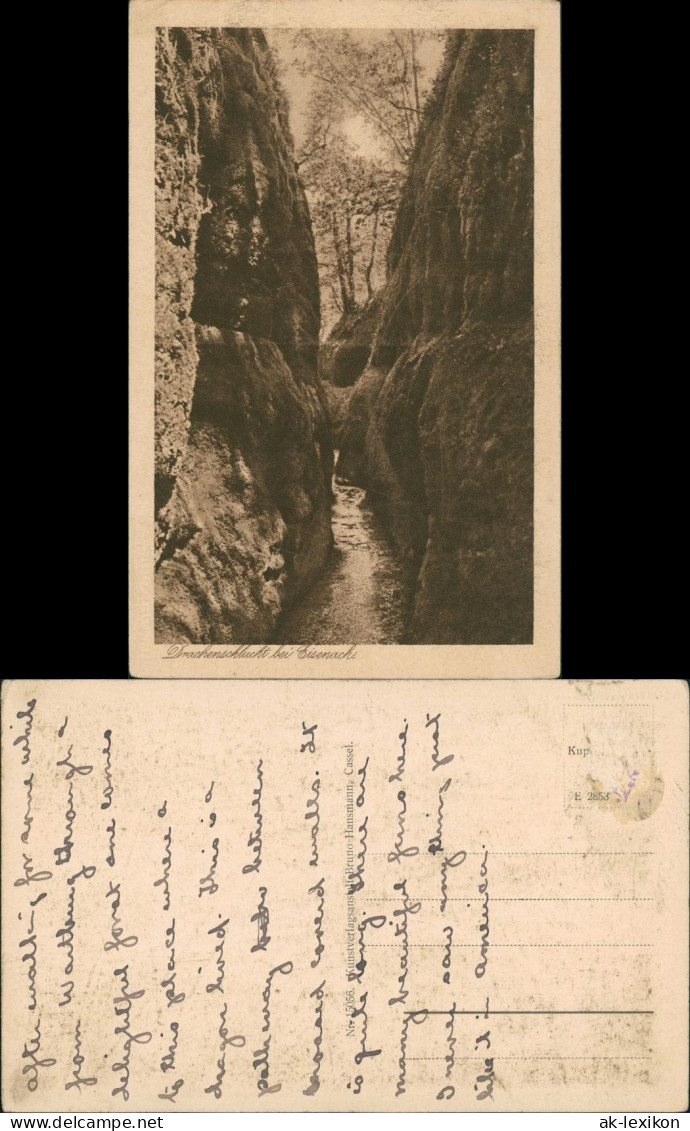 Drachenschlucht bei Eisenach.
after walking for some while
from Wartburg through a
delightful forst one comes
to this place where a
dragon lived. This is a
path way between
mossed coverd walls. It
is quite long there are
many beautiful ferns here.
I never saw any thing just
like it in America.
Nr. 15056. Kunstverlagsanstalt Bruno Hansmann, Cassel.
Kup
E 2853
delcampe.net
ak-lexikon